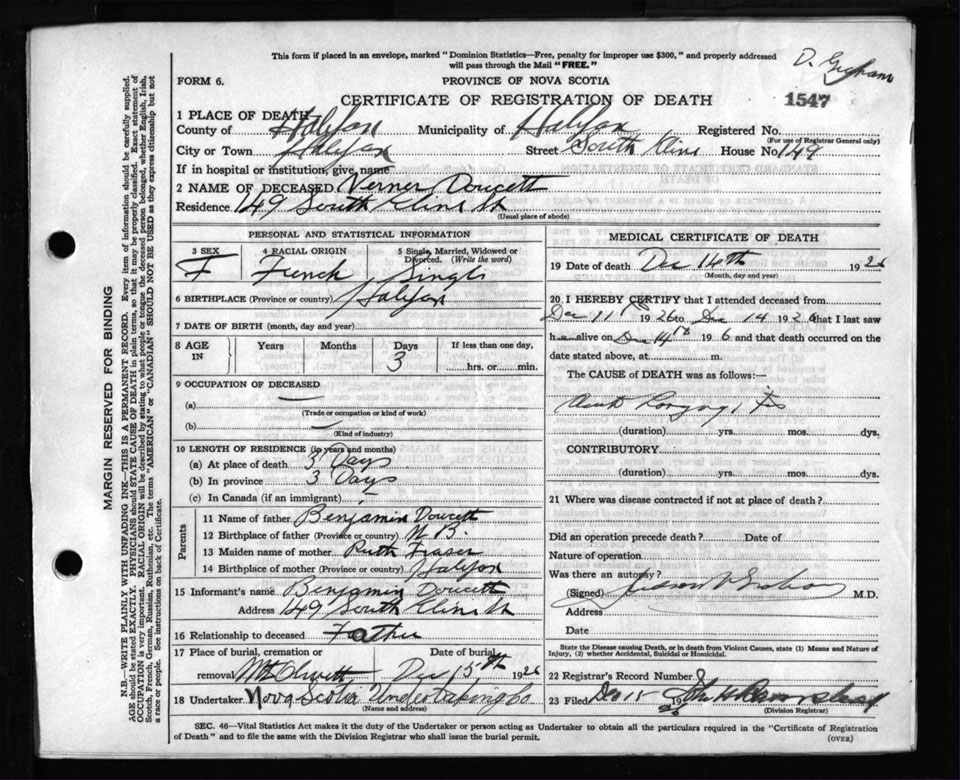 This form if placed in an envelope, marked "Dominion Statistics—Free, penalty for improper use $300," and properly addressed
will pass through the Mail "FREE."
D. Graham
FORM 6.
PROVINCE OF NOVA SCOTIA
CERTIFICATE OF REGISTRATION OF DEATH
1547
1 PLACE OF DEATH
County of Halifax Municipality of Halifax Registered No.
(For use of Registrar General only)
City or Town Halifax Street South Cline House No. 149
If in hospital or institution, give name
2 NAME OF DECEASED Verner Doucett
Residence 149 South Cline St
(Usual place of abode)
PERSONAL AND STATISTICAL INFORMATION
3 SEX 4 RACIAL ORIGIN 5 Single, Married, Widowed or Divorced. (Write the word)
F French Single
6 BIRTHPLACE (Province or country) Halifax
7 DATE OF BIRTH (month, day and year)
8 AGE IN Years Months Days If less than one day,
3 hrs. or min.
9 OCCUPATION OF DECEASED
(a) —
(Trade or occupation or kind of work)
(b) —
(Kind of industry)
10 LENGTH OF RESIDENCE (in years and months)
(a) At place of death 3 Days
(b) In province 3 Days
(c) In Canada (if an immigrant)
Parents
11 Name of father Benjamin Doucett
12 Birthplace of father (Province or country) N.B.
13 Maiden name of mother Ruth Fraser
14 Birthplace of mother (Province or country) Halifax
15 Informant's name Benjamin Doucett
Address 149 South Cline St
16 Relationship to deceased Father
17 Place of burial, cremation or Date of burial
removal Mt Olivett Dec 15th 1926
18 Undertaker Nova Scotia Undertaking Co
(Name and address)
MEDICAL CERTIFICATE OF DEATH
19 Date of death Dec 14th 1926
(Month, day and year)
20 I HEREBY CERTIFY that I attended deceased from
Dec 11th 1926 to Dec 14 1926 that I last saw
h alive on Dec 14th 1926 and that death occurred on the
date stated above, at m.
The CAUSE of DEATH was as follows:—
Acute
(duration) yrs. mos. dys.
CONTRIBUTORY
(duration) yrs. mos. dys.
21 Where was disease contracted if not at place of death?
Did an operation precede death? Date of
Nature of operation
Was there an autopsy?
(Signed) M.D.
Address
Date
State the Disease causing Death, or in death from Violent Causes, state (1) Means and Nature of
Injury, (2) whether Accidental, Suicidal or Homicidal.
22 Registrar's Record Number
23 Filed Dec 15 1926
(Division Registrar)
SEC. 46—Vital Statistics Act makes it the duty of the Undertaker or person acting as Undertaker to obtain all the particulars required in the "Certificate of Registration
of Death" and to file the same with the Division Registrar who shall issue the burial permit.
(OVER)
MARGIN RESERVED FOR BINDING
N.B.—WRITE PLAINLY WITH UNFADING INK—THIS IS A PERMANENT RECORD. Every item of information should be carefully supplied.
AGE should be stated EXACTLY. PHYSICIANS should STATE CAUSE OF DEATH in plain terms, so that it may be properly classified. Exact statement of
OCCUPATION is very important. RACIAL ORIGIN will be described by stating to what people or tongue the deceased person belonged, whether English, Irish,
Scotch, French, German, Russian, Ruthenian, etc. The terms "AMERICAN" or "CANADIAN" SHOULD NOT BE USED as they express citizenship but not
a race or people. See instructions on back of Certificate.